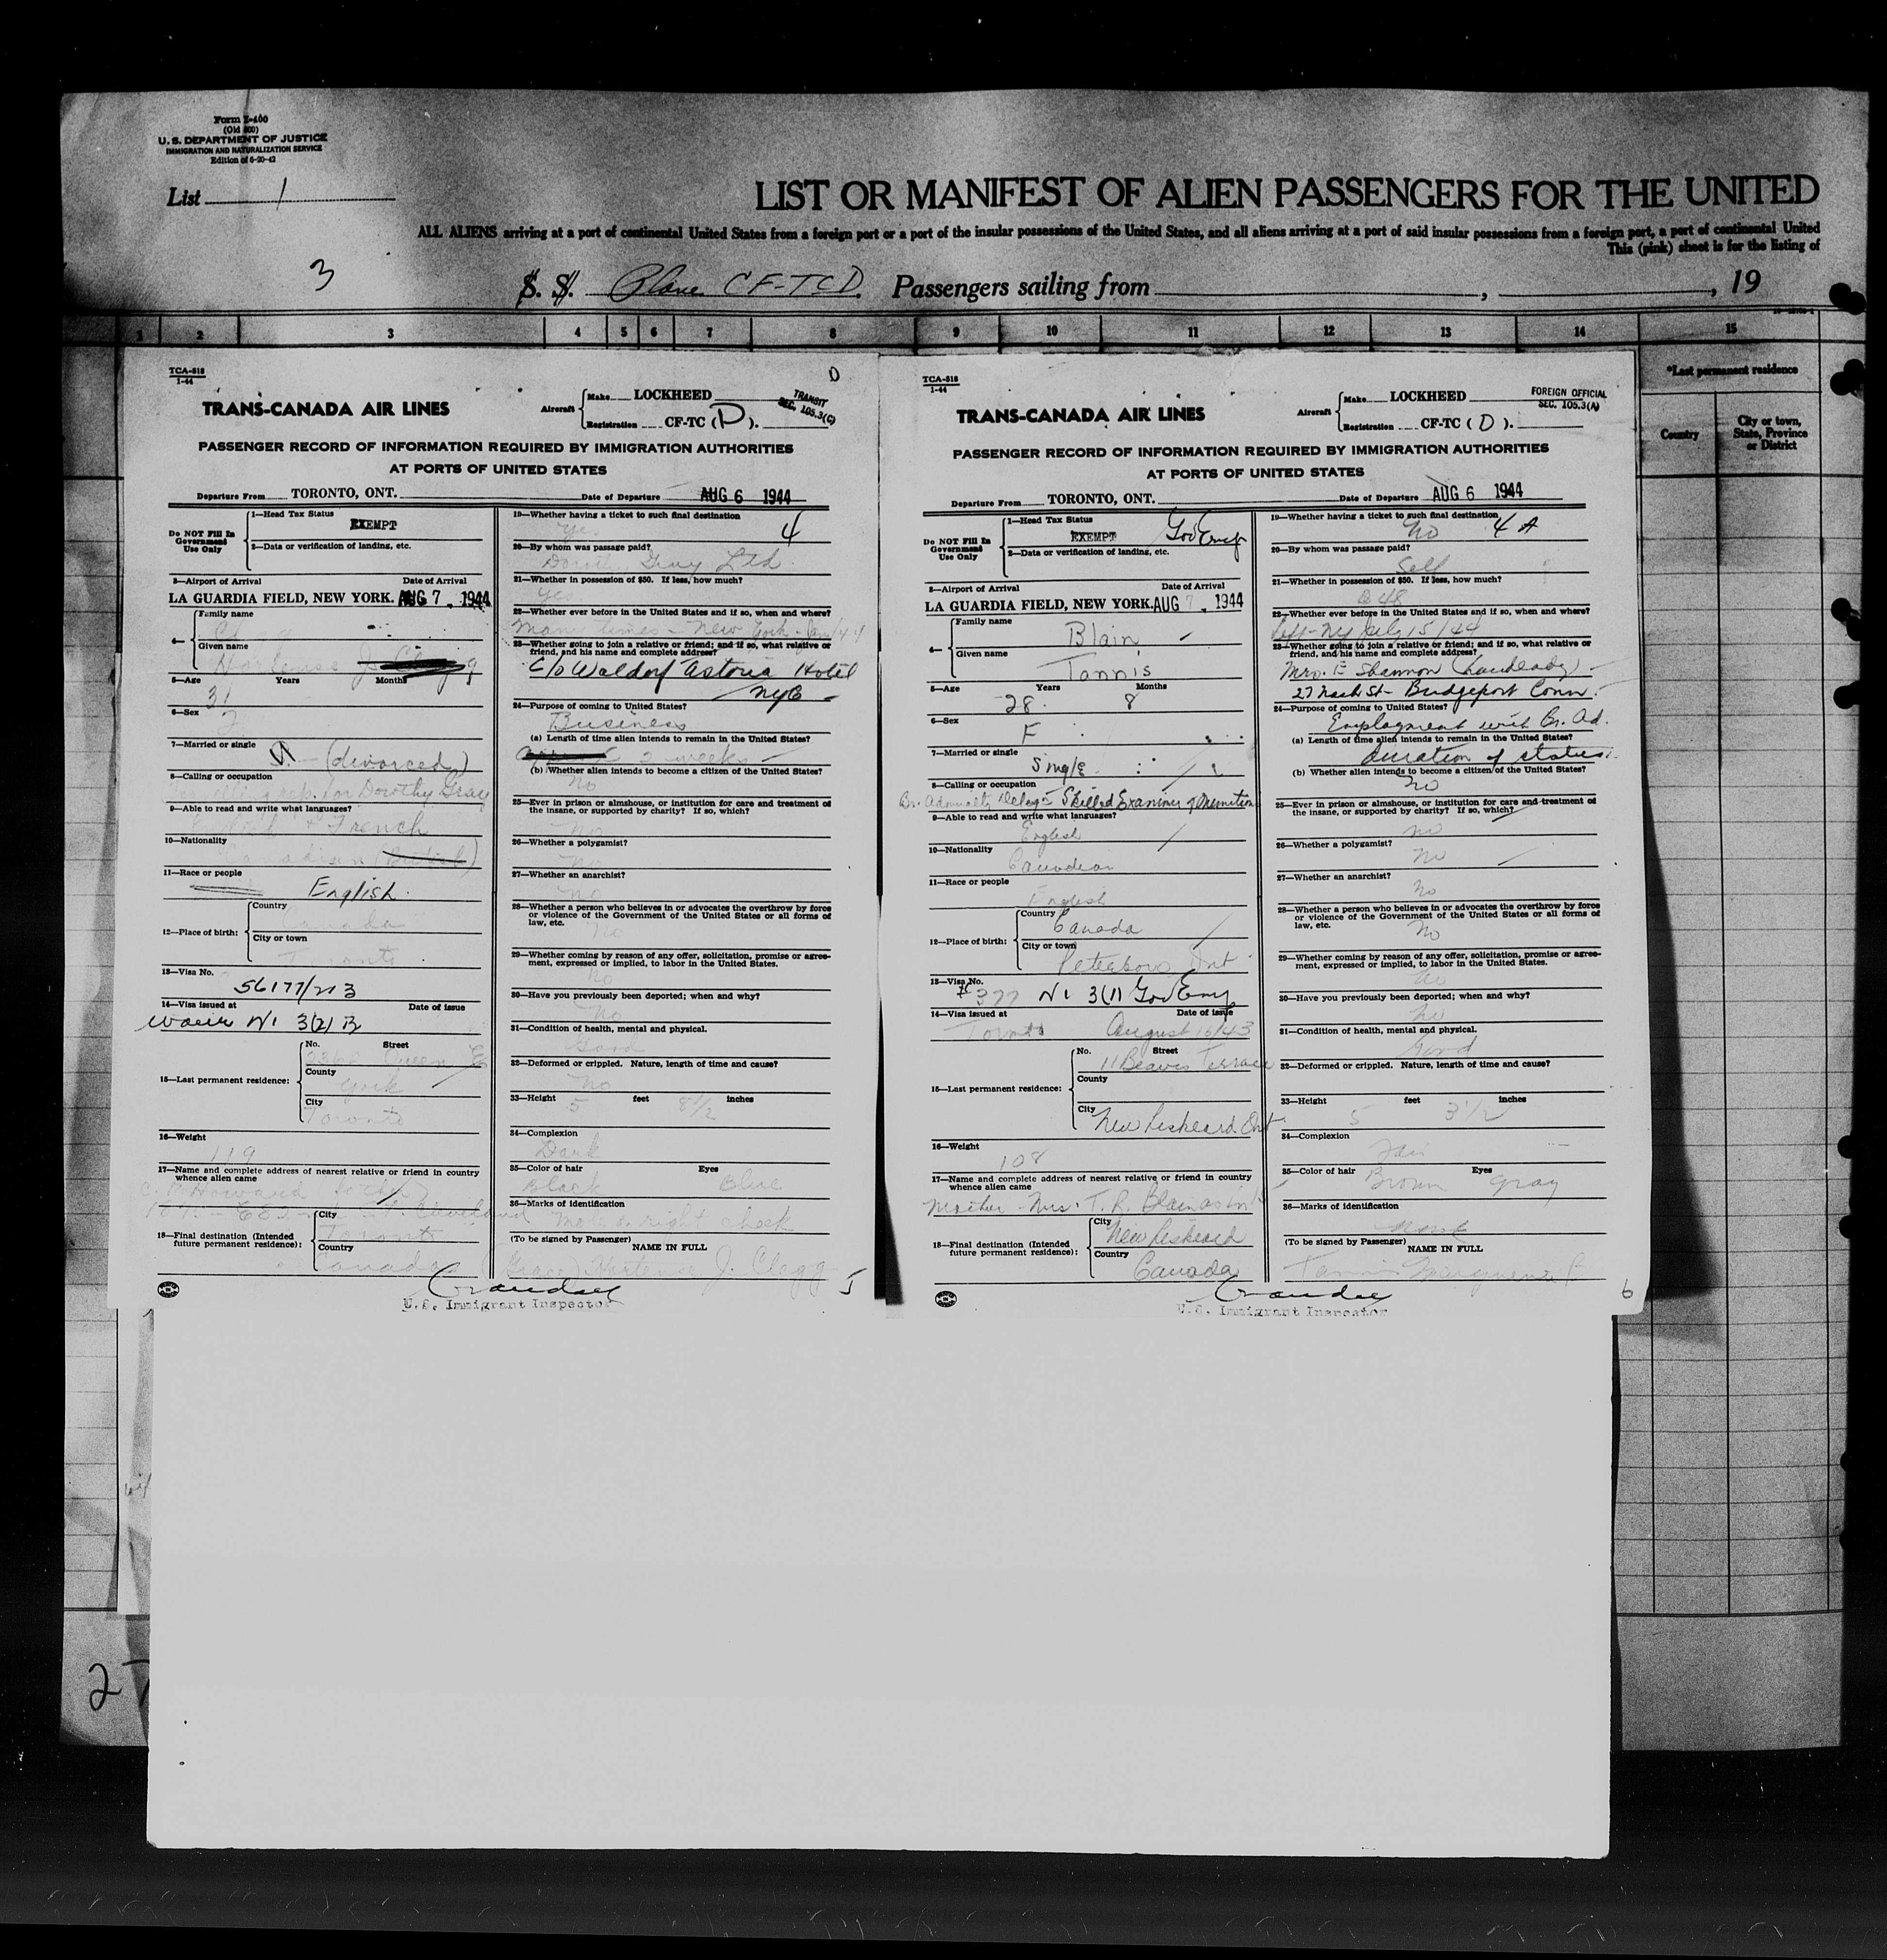 Form I-400
(Old 600)
U. S. DEPARTMENT OF JUSTICE
IMMIGRATION AND NATURALIZATION SERVICE
Edition of 6-20-42
List 1
LIST OR MANIFEST OF ALIEN PASSENGERS FOR THE UNITED
ALL ALIENS arriving at a port of continental United States from a foreign port or a port of the insular possessions of the United States, and all aliens arriving at a port of said insular possessions from a foreign port, a port of continental United
This (pink) sheet is for the listing of
3
S. S. Plane CF-TCD. Passengers sailing from , , 19
1 2 3 4 5 6 7 8 9 10 11 12 13 14 15
*Last permanent residence
Country
City or town, State, Province or District
27
TCA-818
1-44
D
TRANS-CANADA AIR LINES
Aircraft
Make LOCKHEED
Registration CF-TC (D).
TRANSIT
SEC. 105.3(C)
PASSENGER RECORD OF INFORMATION REQUIRED BY IMMIGRATION AUTHORITIES
AT PORTS OF UNITED STATES
Departure From TORONTO, ONT. Date of Departure AUG 6 1944
Do NOT Fill In Government Use Only
1—Head Tax Status
EXEMPT
2—Data or verification of landing, etc.
3—Airport of Arrival Date of Arrival
LA GUARDIA FIELD, NEW YORK. AUG 7 1944
4—
Family name
Given name
Hortense J.
5—Age Years Months
31
6—Sex
7—Married or single
(divorced)
8—Calling or occupation
rep. for Dorothy Gray
9—Able to read and write what languages?
French
10—Nationality
11—Race or people
English.
12—Place of birth:
Country
City or town
Toronto
13—Visa No.
56177/213
14—Visa issued at Date of issue
3(2) B
15—Last permanent residence:
No. Street
Queen E
County
York
City
Toronto
16—Weight
119
17—Name and complete address of nearest relative or friend in country whence alien came
Howard
Cleveland
18—Final destination (Intended future permanent residence):
City
Toronto
Country
Canada
19—Whether having a ticket to such final destination
Yes 4
20—By whom was passage paid?
Dorothy Gray Ltd.
21—Whether in possession of $50. If less, how much?
Yes
22—Whether ever before in the United States and if so, when and where?
Many times - New York - Jan/44
23—Whether going to join a relative or friend; and if so, what relative or friend, and his name and complete address?
C/o Waldorf Astoria Hotel
NYC
24—Purpose of coming to United States?
Business
(a) Length of time alien intends to remain in the United States?
2 weeks
(b) Whether alien intends to become a citizen of the United States?
No
25—Ever in prison or almshouse, or institution for care and treatment of the insane, or supported by charity? If so, which?
No
26—Whether a polygamist?
No
27—Whether an anarchist?
No
28—Whether a person who believes in or advocates the overthrow by force or violence of the Government of the United States or all forms of law, etc.
No
29—Whether coming by reason of any offer, solicitation, promise or agreement, expressed or implied, to labor in the United States.
No
30—Have you previously been deported; when and why?
No
31—Condition of health, mental and physical.
Good
32—Deformed or crippled. Nature, length of time and cause?
No
33—Height 5 feet 8 1/2 inches
34—Complexion
Dark
35—Color of hair Eyes
Black Blue
36—Marks of identification
Mole on right cheek
(To be signed by Passenger)
NAME IN FULL
(Grace) Hortense J. Clegg
5
U. S. Immigrant Inspector
TCA-818
1-44
TRANS-CANADA AIR LINES
Aircraft
Make LOCKHEED
Registration CF-TC (D).
FOREIGN OFFICIAL
SEC. 105.3(A)
PASSENGER RECORD OF INFORMATION REQUIRED BY IMMIGRATION AUTHORITIES
AT PORTS OF UNITED STATES
Departure From TORONTO, ONT. Date of Departure AUG 6 1944
Do NOT Fill In Government Use Only
1—Head Tax Status
EXEMPT Gov Emp
2—Data or verification of landing, etc.
3—Airport of Arrival Date of Arrival
LA GUARDIA FIELD, NEW YORK. AUG 7 1944
4—
Family name
Blain
Given name
Tannis
5—Age Years Months
28 8
6—Sex
F
7—Married or single
Single
8—Calling or occupation
Br. Admiralty Skilled Examiner of Munitions
9—Able to read and write what languages?
English
10—Nationality
Canadian
11—Race or people
English
12—Place of birth:
Country
Canada
City or town
Peterboro Ont
13—Visa No.
#377 3(1) Gov Emp
14—Visa issued at Date of issue
Toronto August 16/43
15—Last permanent residence:
No. Street
11 Beaver Terrace
County
City
New Liskeard Ont
16—Weight
108
17—Name and complete address of nearest relative or friend in country whence alien came
Mother - Mrs. T. R. Blain as in 15
18—Final destination (Intended future permanent residence):
City
New Liskeard
Country
Canada
19—Whether having a ticket to such final destination
No 4 A
20—By whom was passage paid?
Self
21—Whether in possession of $50. If less, how much?
48
22—Whether ever before in the United States and if so, when and where?
Left - NY July 15/44
23—Whether going to join a relative or friend; and if so, what relative or friend, and his name and complete address?
Mrs. E Shannon (Landlady)
27 Nash St - Bridgeport Conn.
24—Purpose of coming to United States?
Employment with Br. Ad.
(a) Length of time alien intends to remain in the United States?
duration of status
(b) Whether alien intends to become a citizen of the United States?
No
25—Ever in prison or almshouse, or institution for care and treatment of the insane, or supported by charity? If so, which?
No
26—Whether a polygamist?
No
27—Whether an anarchist?
No
28—Whether a person who believes in or advocates the overthrow by force or violence of the Government of the United States or all forms of law, etc.
No
29—Whether coming by reason of any offer, solicitation, promise or agreement, expressed or implied, to labor in the United States.
No
30—Have you previously been deported; when and why?
No
31—Condition of health, mental and physical.
Good
32—Deformed or crippled. Nature, length of time and cause?
33—Height 5 feet 3 1/2 inches
34—Complexion
Fair
35—Color of hair Eyes
Brown Gray
36—Marks of identification
(To be signed by Passenger)
NAME IN FULL
6
U. S. Immigrant Inspector